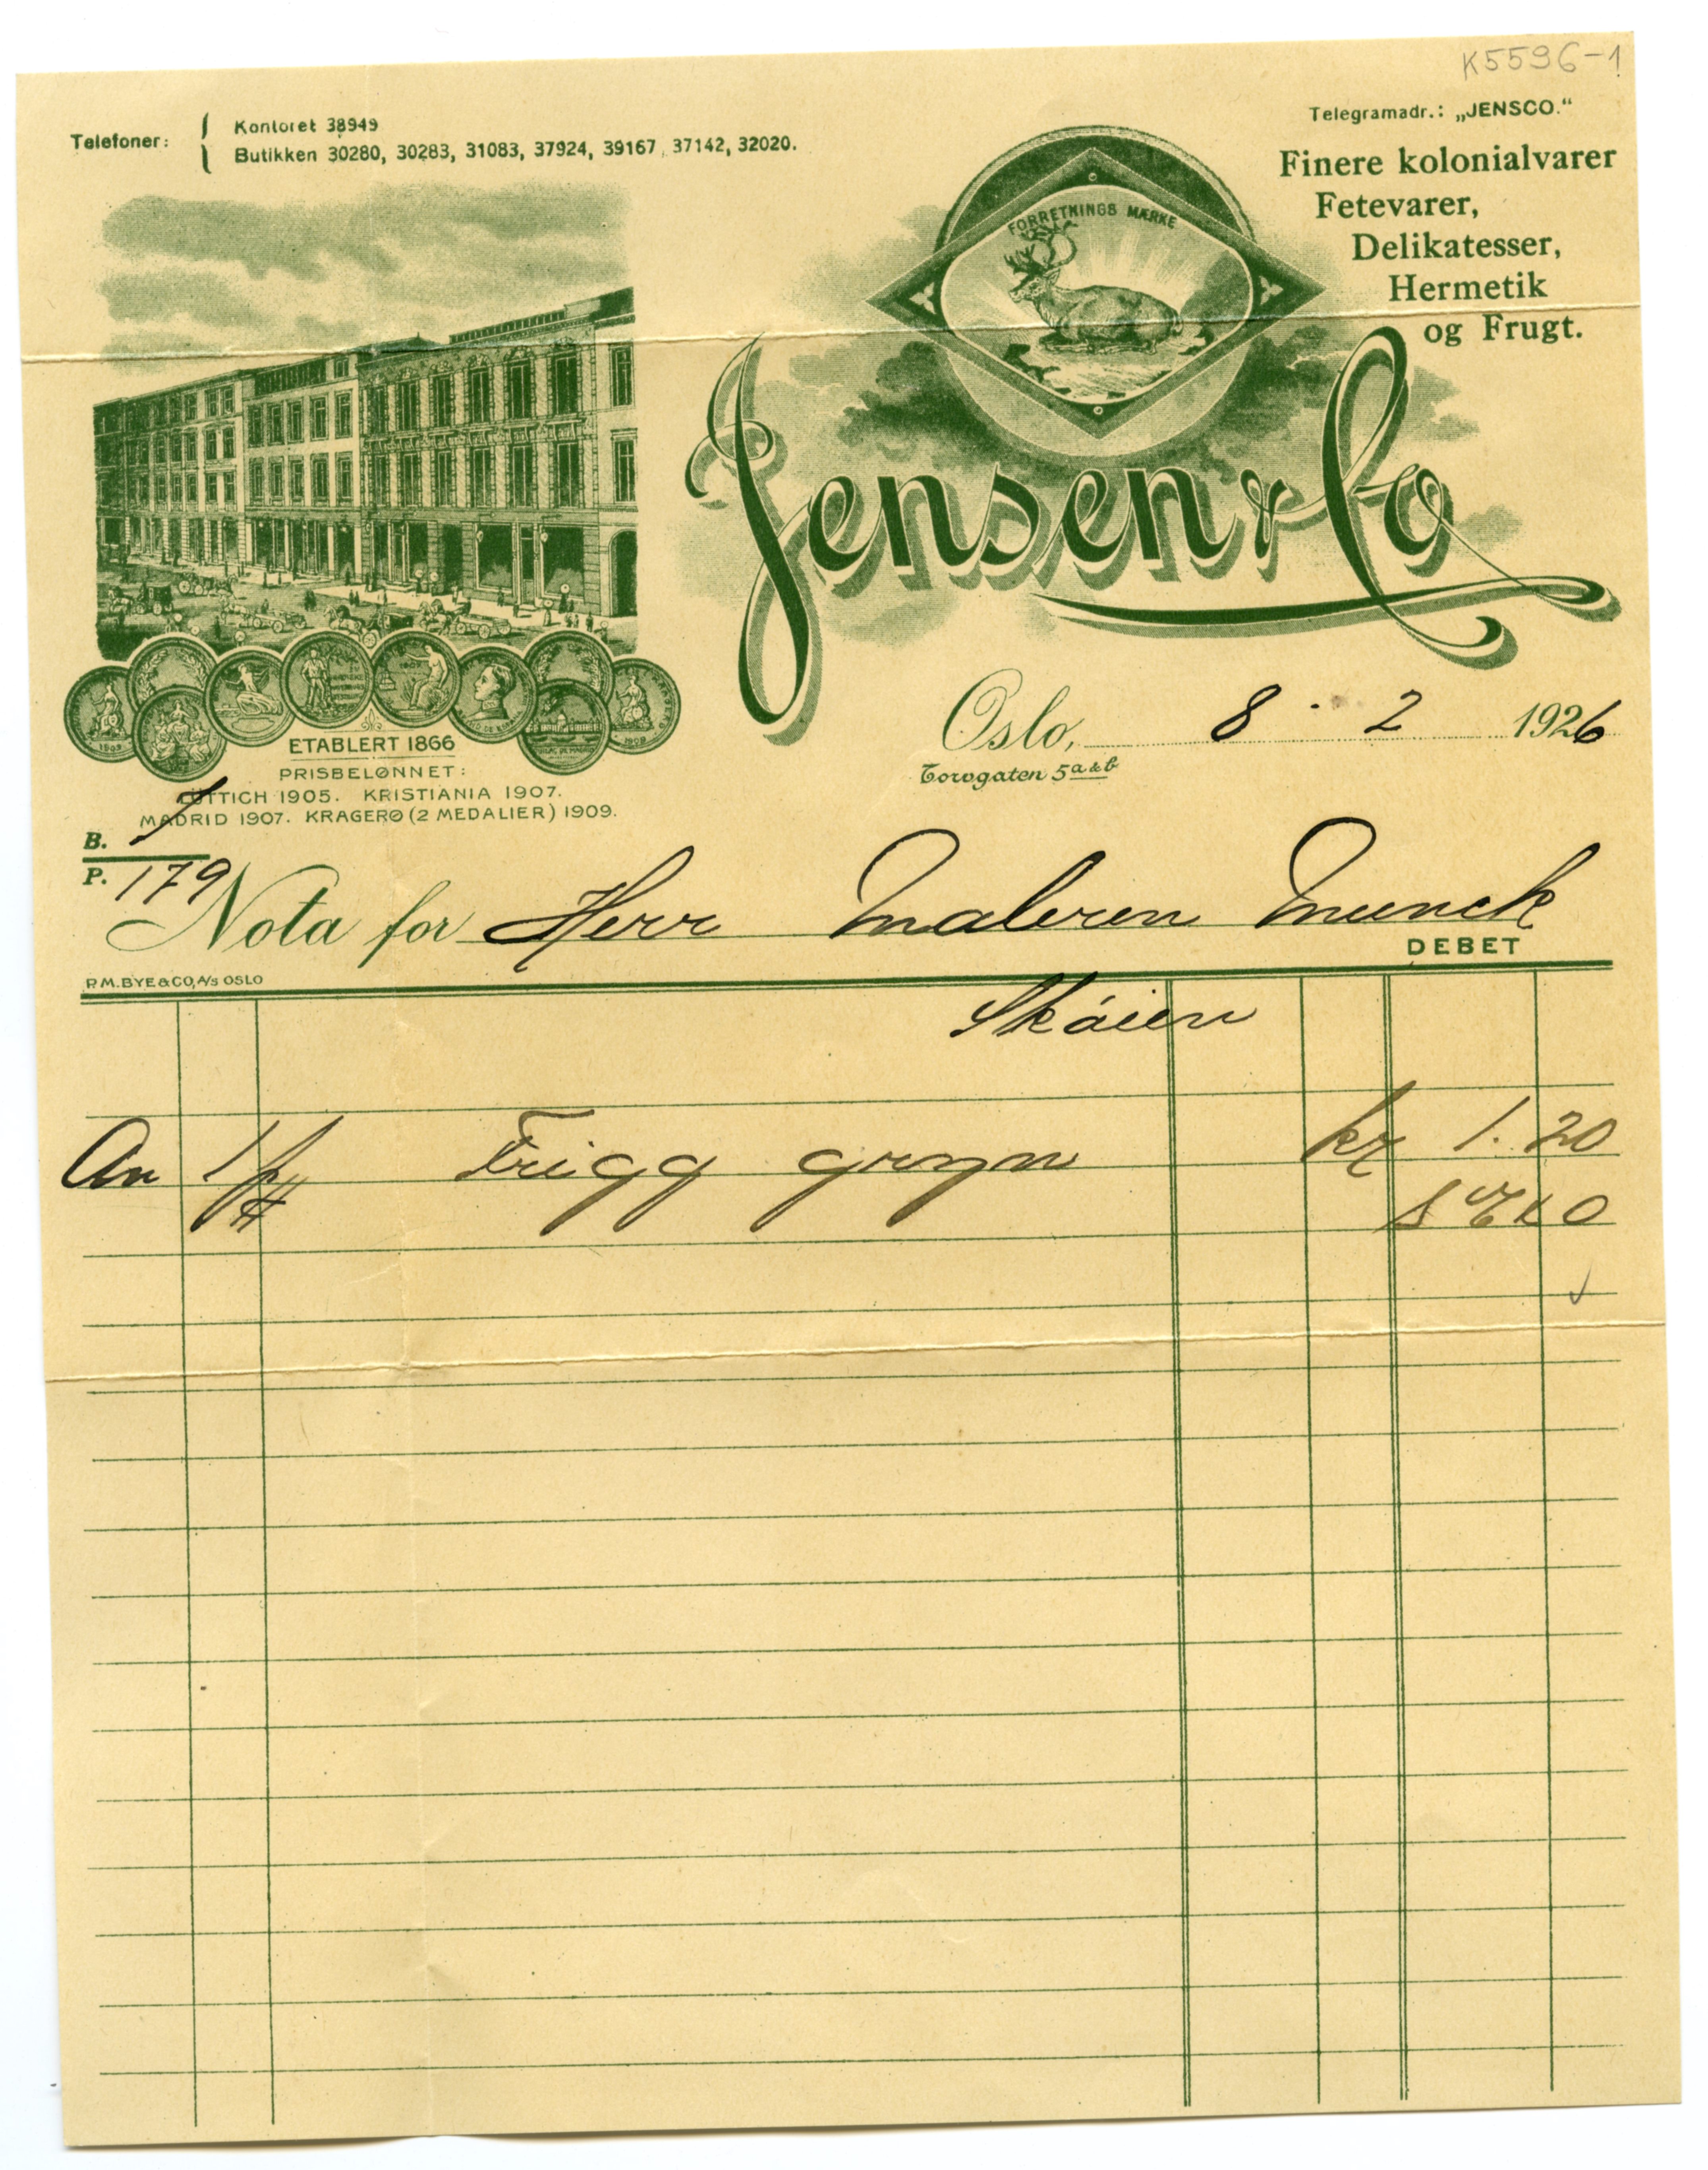 K5596-1
Telefoner: Kontoret 38949
Butikken 30280, 30283, 31083, 37924, 39167, 37142, 32020.
Telegramadr.: „JENSCO.“
Finere kolonialvarer
Fetevarer,
Delikatesser,
Hermetik
og Frugt.
FORRETNINGS MÆRKE
Jensen & Co
ETABLERT 1866
PRISBELØNNET:
LÜTTICH 1905. KRISTIANIA 1907.
MADRID 1907. KRAGERØ (2 MEDALIER) 1909.
Oslo, 8 - 2 1926
Torvgaten 5 a & b
B.
P. 179
Nota for Herr Maleren Munch
DEBET
P.M. BYE & CO, A/S OSLO
Skøien
An 1 Frigg gryn kr 1.20